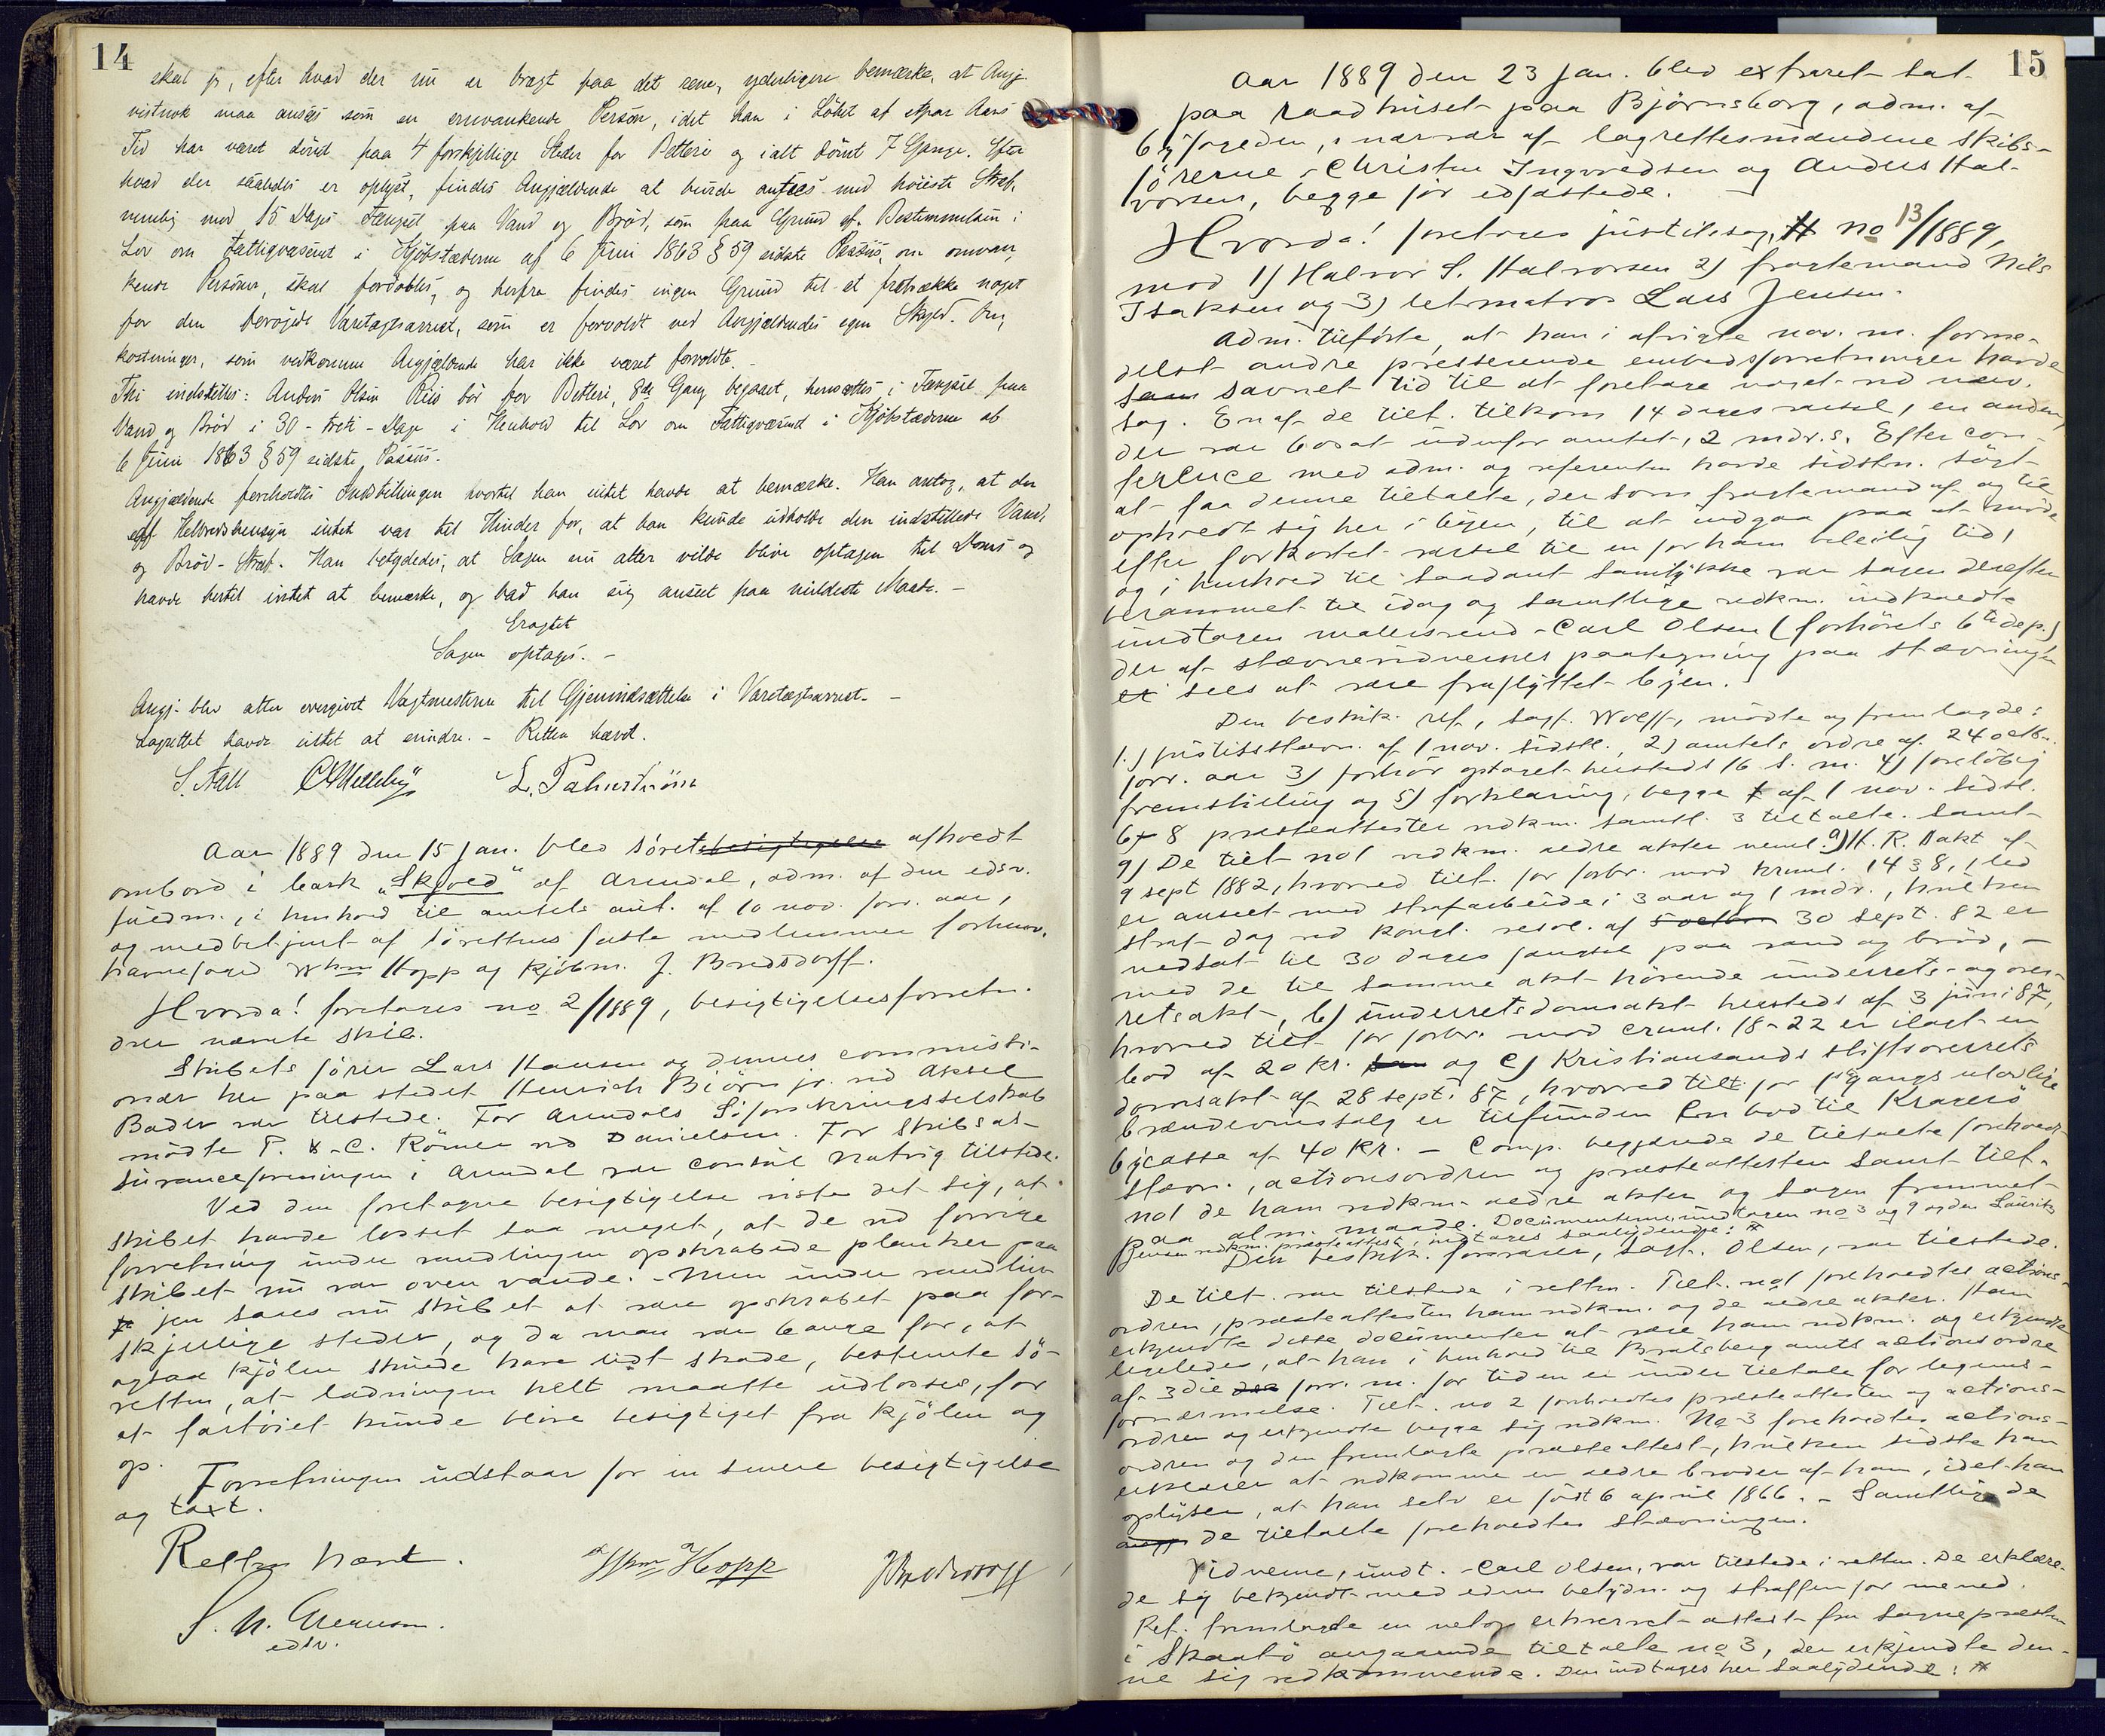 14
skal jeg, efter hvad der nu er bragt paa det rene, yderligere bemærke, at Angj.
vistnok maa ansees som en omvankende Person, idet han i Løbet af et par Aars
Tid har været dømt paa 4 forskjellige Steder for Betleri og ialt dømt 7 Gange. Efter
hvad der saaledes er oplyst, findes Angjældende at burde ansees med høieste Straf,
nemlig med 15 Dages Fængsel paa Vand og Brød, som paa Grund af Bestemmelsen i
Lov om Fattigvæsenet i Kjøbstæderne af 6 Juni 1863 § 59 sidste Passus, om omvan-
kende Personer, skal fordobles, og herfra findes ingen Grund til at fratrække noget
for den Varetægtsarrest, som er forvoldt ved Angjældendes egen Skyld. Om-
kostninger, som vedkomme Angjældende har ikke været forvoldte.
Thi indstilles: Anders Olsen Riis bør for Betleri, 8de Gang begaaet, hensættes i Fængsel paa
Vand og Brød i 30 - treti - Dage i Henhold til Lov om Fattigvæsenet i Kjøbstæderne af
6 Juni 1863 § 59 sidste Passus.
Angjældende foreholdtes Indstillingen hvortil han intet havde at bemærke. Han antog, at der
af Helbredshensyn intet var til Hinder for, at han kunde udholde den indstillede Vand-
og Brød-Straf. Han betydedes, at Sagen nu atter vilde blive optagen til Doms og
havde hertil intet at bemærke, og bad han sig anseet paa mildeste Maade. -
Eragtet
Sagen optages. -
Angj. blev atter overgivet Vagtmesteren til Gjenindsættelse i Varetægtsarrest. -
Lagrettet havde intet at erindre. - Retten hævet.
S. Aall
L. Palmstrøm
Aar 1889 den 15 Jan. blev søret besigtigelse afholdt
ombord i bark „Skjold" af Arendal, adm. af den edsv.
fuldm., i henhold til amtets ant. af 10 nov. forr. aar,
og med betjent af sørettens faste medlemmer forhenv.
havnefoged Whm Hopp og kjøbm. J. Bredsdorff.
Hvorda! foretages no 2/1889, besigtigelsesforretn.
over nævnte skib.
Skibets fører Lars Hansen og dennes commissi-
onær her paa stedet Henrich Biørn jr. ved Aksel
Bader var tilstede. For Arendals Søforsikringsselskab
mødte P. & C. Rømer ved Danielsen. For Skibsas-
suranceforeningen i Arendal var consul Natvig tilstede.
Ved den foretagne besigtigelse viste det sig, at
skibet havde losset saa meget, at de ved forrige
forretning under vandlinjen opskrabede planker paa
skibet nu var oven vande. - Men under vandlin-
jen saaes nu skibet at være opskrabet paa for-
skjellige steder, og da man var bange for, at
ogsaa kjølen skulde have lidt skade, bestemte sø-
retten, at ladningen helt maatte udlosses, for
at fartøiet kunde blive besigtiget fra kjølen og
op.
Forretningen udstaar for en senere besigtigelse
og taxt.
Retten hævet.
Whm Hopp
J Bredsdorff
edsv.
15
Aar 1889 den 23 Jan. blev extraret sat
paa raadhuset paa Bjørnsborg, adm. af
byfogeden, i nærvær af lagrettesmændene skibs-
førerne Christen Ingvoldsen og Anders Hal-
vorsen, begge før edfæstede.
Hvorda! foretages justitssag no 13/1889,
mod 1) Halvor S. Halvorsen 2) fragtemand Nils
Isaksen og 3) letmatros Lars Jensen.
Adm. tilførte, at han i afvigte nov. m. forme-
delst andre presserende embedsforretninger havde
savnet tid til at foretage noget ved nærv.
sag. En af de tilt. tilkom 14 dages varsel, en anden,
der var bosat udenfor amtet, 2 mdr.s. Efter con-
ference med adm. og referenten havde sidstn. søgt
at faa denne tiltalte, der som fragtemand af og til
opholdt sig her i byen, til at indgaa paa at møde
efter forkortet varsel til en for ham beleilig tid,
og i henhold til saadant samtykke var sagen derefter
berammet til idag og samtlige vedkm. indkaldte
undtagen malersvend Carl Olsen (forhørets 6te dep.)
der af stævnevidnernes paategning paa stævningen
sees at være fraflyttet byen.
Den beskik. ref., sagf. Wolff, mødte og fremlagde:
1.) justitsstævn. af 1 nov. sidstl., 2) amtets ordre af 24 octbr.
forr. aar 3) forhør optaget hersteds 16 s. m. 4) foreløbig
fremstilling og 5) forklaring, begge af 1 nov. sidstl.
6-8 præsteattester vedkm. samtl. 3 tiltalte. samt
9) De tilt no 1 vedkm. ældre akter neml. a) H. R. Dakt af
9 sept 1882, hvorved tilt. for forbr. mod krml. 14 § 38, 1 led
er anseet med strafarbeide i 3 aar og 1 mdr., hvilken
straf dog ved kongl. resol. af 30 sept. 82 er
nedsat til 30 dages fængsel paa vand og brød, -
med de til samme akt hørende underrets- og over-
retsakt, b) underretsdomsakt hersteds af 3 juni 87,
hvorved tilt for forbr. mod criml. 18-22 er ilagt en
bod af 20 kr. og c) Kristiansands stiftsoverrets
domsakt af 28 sept. 87, hvorved tilt. for gangs ulovlige
brændevinssalg er tilfunden en bod til Kragerø
bycasse af 40 Kr. - Comp. begjærede de tiltalte foreholdt
stævn., actionsordren og præsteattesten samt tilt.
no 1 de ham vedkm. ældre akter og sagen fremmet
paa alm. maade. Documenterne, undtagen no 3 og 9 og den Laurits
Jensen vedkm. præsteattest, indtages saalydende:
Den beskik. forsvarer, sagf. Olsen, var tilstede.
De tilt. var tilstede i retten. Tilt. no 1 foreholdtes actions-
ordren, præsteattesten ham vedkm. og de ældre akter. Han
erkjendte disse documenter at være ham vedkm. og erkjendte
ligeledes, at han i henhold til Bratsberg amts actionsordre
af 3die forr. m. for tiden er under tiltale for legems-
fornærmelse. Tilt. no 2 foreholdtes præsteattesten og actions-
ordren og erkjendte begge sig vedkm. No 3 foreholdtes actions-
ordren og den fremlagte præsteattest, hvilken sidste han
erklærer at vedkomme en ældre broder af ham, idet han
oplyser, at han selv er født 6 april 1866. - Samtlige de
de tiltalte foreholdtes stævningen.
Vidnerne, undt. Carl Olsen, var tilstede i retten. De erklære-
de sig bekjendt med edens betydn. og straffen for mened.
Ref. fremlagde en netop erhvervet attest fra sognepræsten
i Skaatø angaaende tiltalte no 3, der erkjendte den-
ne sig vedkommende. Den indtages her saalydende: